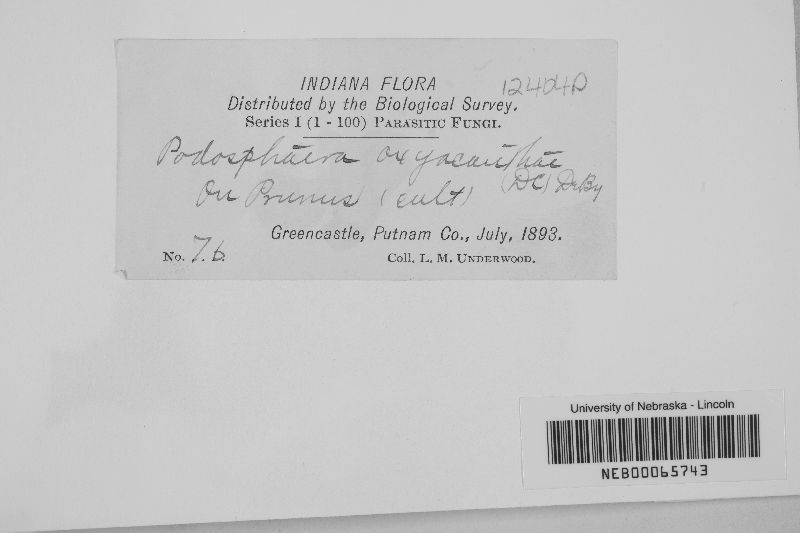 INDIANA FLORA
12404D
Distributed by the Biological Survey.
Series 1 (1 - 100) PARASITIC FUNGI.
Podosphaera oxyacanthae
(DC) DeBy
On Prunus (cult)
Greencastle, Putnam Co., July, 1893.
No. 7.b.
Coll. L. M. UNDERWOOD.
University of Nebraska - Lincoln
NEB00065743